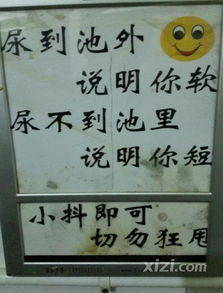 尿到池外
说明你软
尿不到池里
说明你短
小抖即可
切勿狂甩
xizi.com